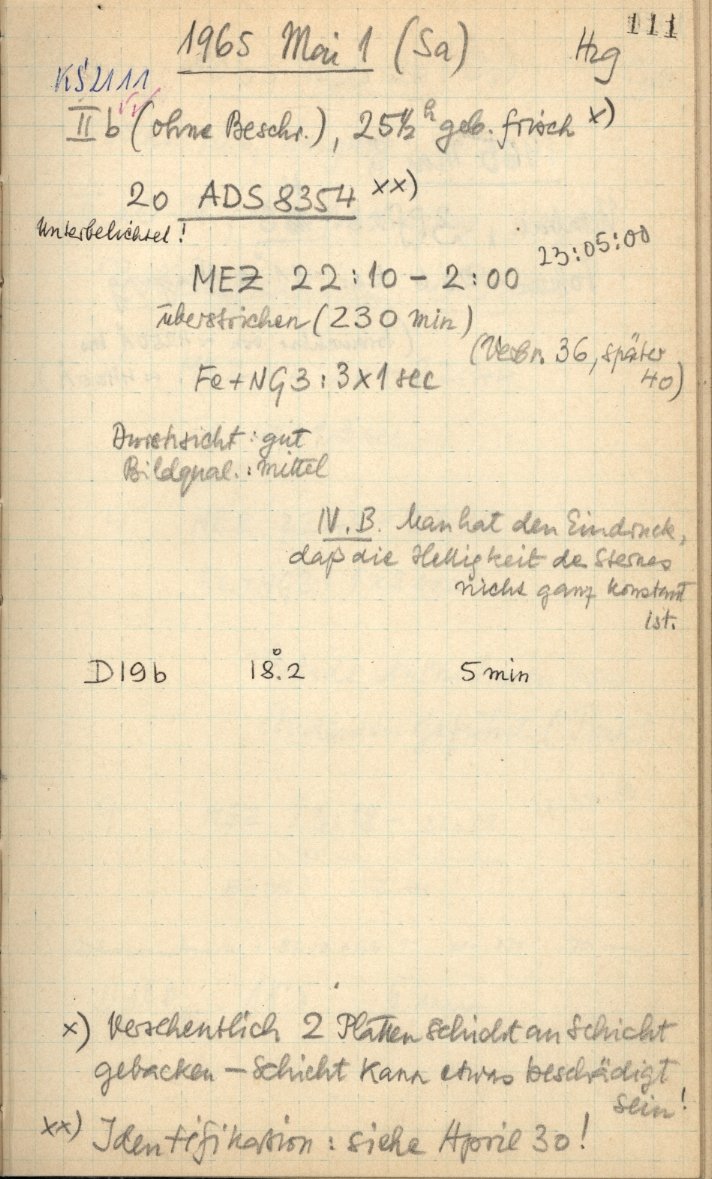 111
1965 Mai 1 (Sa) Hzg
KS 2111
IIb (ohne Beschr.), 25½ h geb. frisch x)
20 ADS 8354 xx)
Unterbelichtet!
23:05:00
MEZ 22:10 - 2:00
überstrichen (230 min)
(Verbr. 36, später
40)
Fe+NG3: 3x1 sec
Durchsicht: gut
Bildqual.: mittel
N.B. Man hat den Eindruck,
daß die Helligkeit des Sternes
nicht ganz konstant
ist.
D19b 18°.2 5 min
x) Versehentlich 2 Platten Schicht an Schicht
gebacken – Schicht kann etwas beschädigt
sein!
xx) Identifikation: siehe April 30!